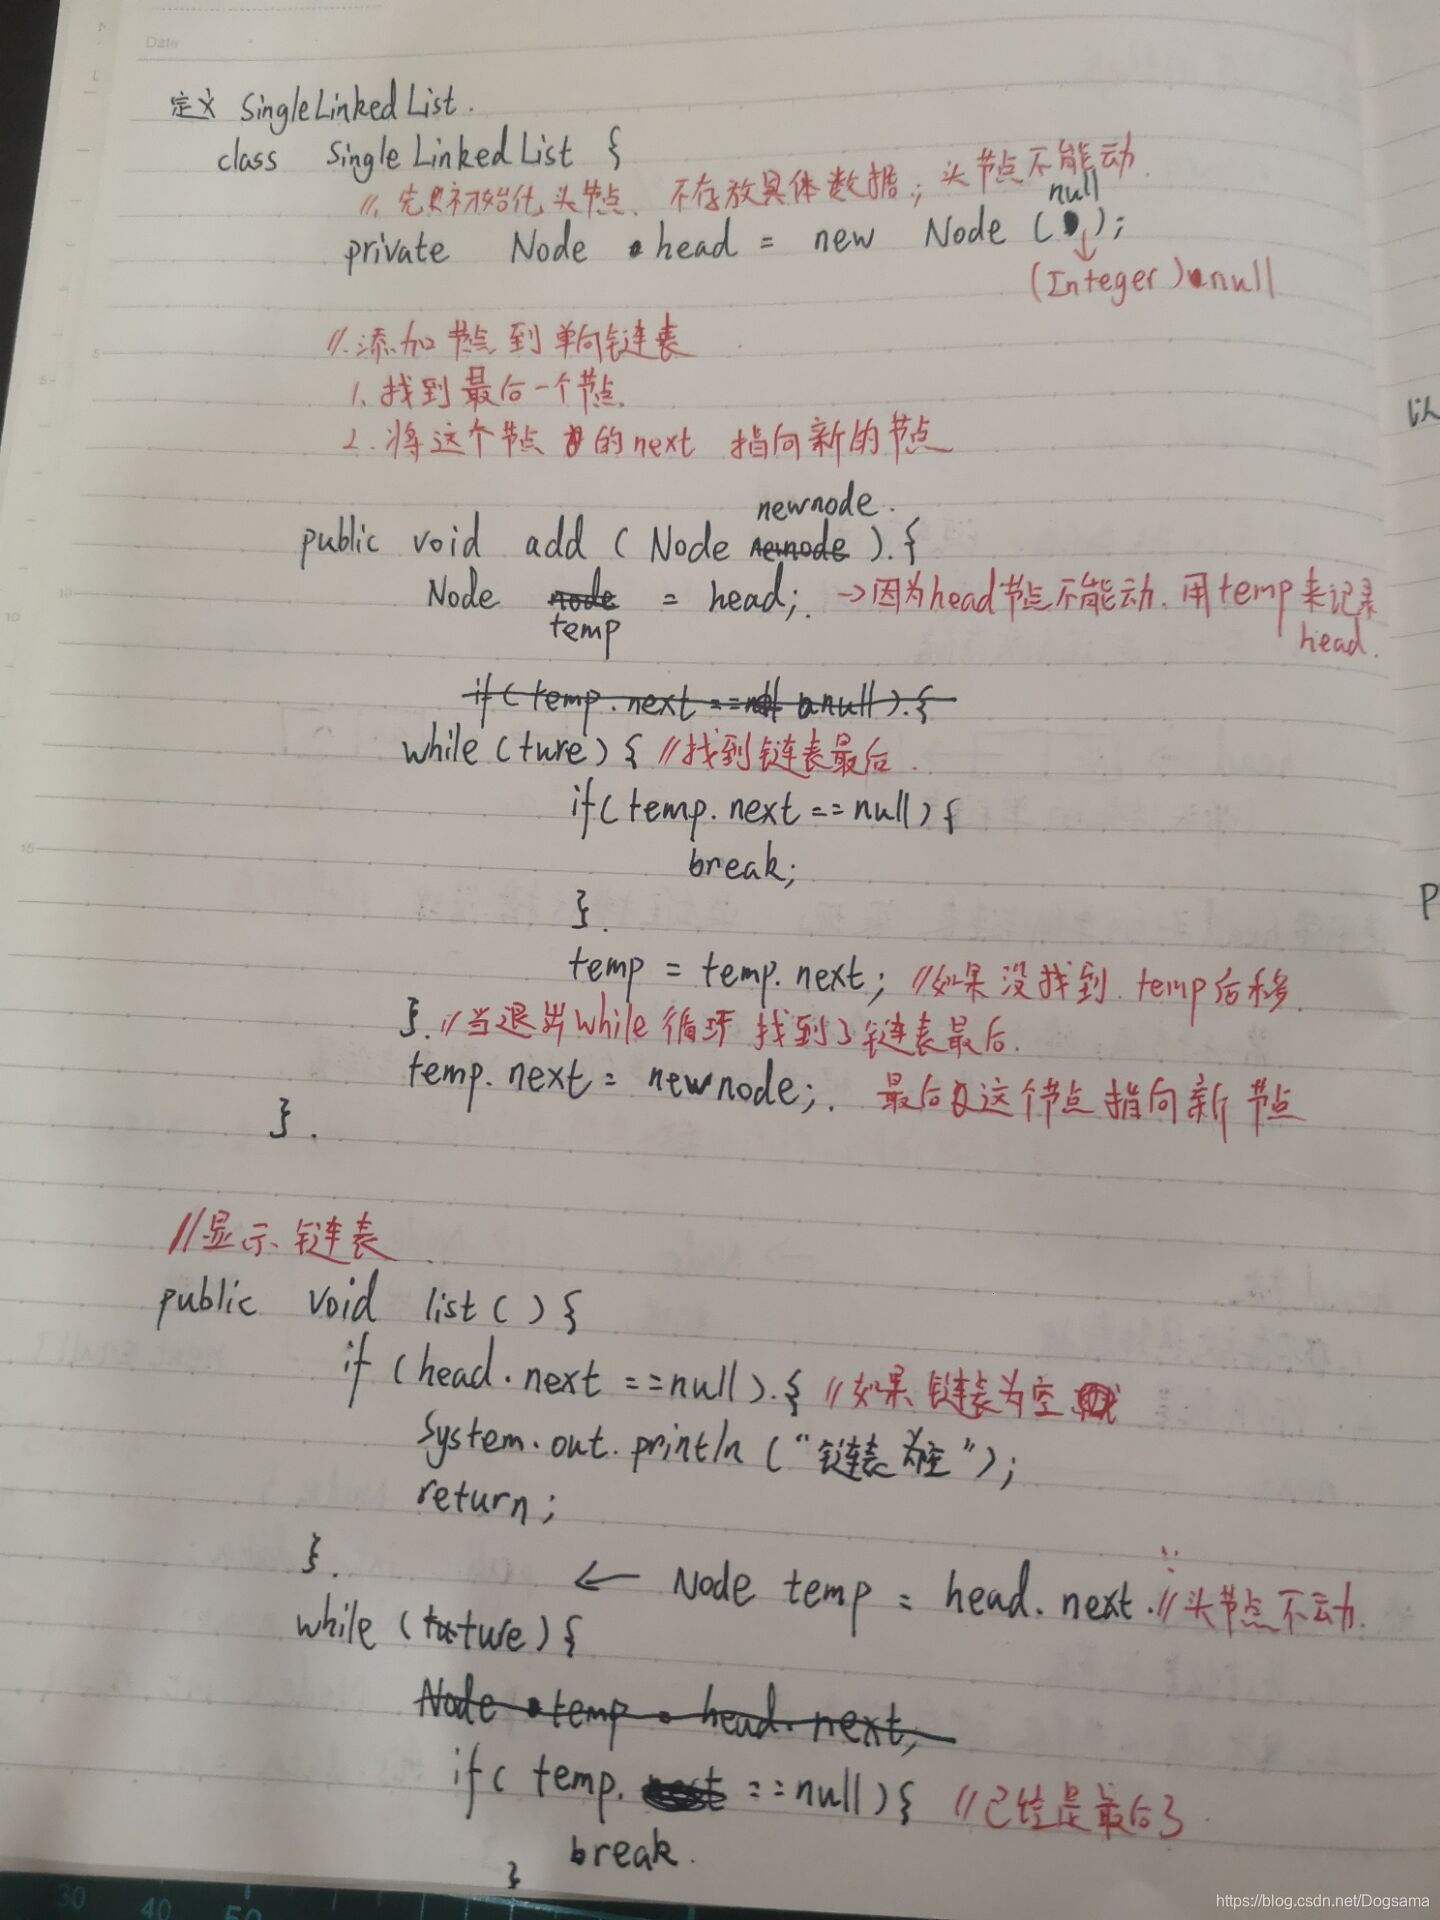 Date
定义 SingleLinkedList.
class SingleLinkedList {
//. 先初始化头节点. 不存放具体数据; 头节点不能动.
null
private Node head = new Node ( );
(Integer) null
//.添加节点到单向链表
1. 找到最后一个节点.
2. 将这个节点的next 指向新的节点
newnode.
public void add ( Node newnode ).{
Node node = head;. →因为head节点不能动. 用temp来记录
temp
head.
if ( temp.next == null ).{
while (ture) { //找到链表最后.
if( temp. next == null) {
break;
}.
temp = temp. next; //如果没找到. temp后移.
}. //当退出while循环 找到了链表最后.
temp. next = newnode;. 最后这个节点指向新节点
}.
//显示链表.
public void list ( ) {
if (head. next ==null).{ //如果链表为空
System. out. println ("链表为空");
return;
}.
← Node temp = head. next. //头节点不动.
while (ture) {
Node temp = head. next;
if( temp. ==null) { //已经是最后了.
break.
}
以
P
5
10
15
30 40 50
https://blog.csdn.net/Dogsama